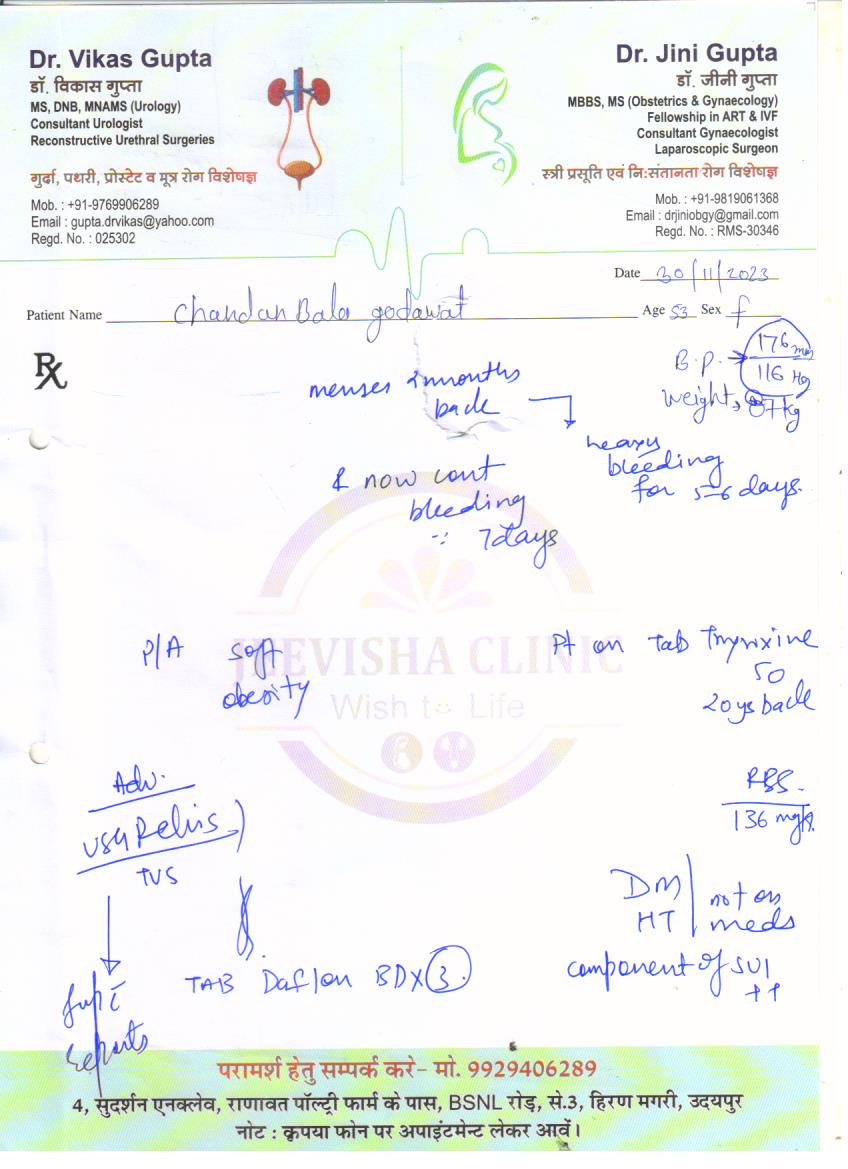 Dr. Vikas Gupta
डॉ. विकास गुप्ता
MS, DNB, MNAMS (Urology)
Consultant Urologist
Reconstructive Urethral Surgeries
गुर्दा, पथरी, प्रोस्टेट व मूत्र रोग विशेषज्ञ
Mob. : +91-9769906289
Email : gupta.drvikas@yahoo.com
Regd. No. : 025302
Dr. Jini Gupta
डॉ. जीनी गुप्ता
MBBS, MS (Obstetrics & Gynaecology)
Fellowship in ART & IVF
Consultant Gynaecologist
Laparoscopic Surgeon
स्त्री प्रसूति एवं नि:संतानता रोग विशेषज्ञ
Mob. : +91-9819061368
Email : drjiniobgy@gmail.com
Regd. No. : RMS-30346
Date 30/11/2023
Patient Name Chandan Bala godawat Age 53 Sex f
Rx
B.P. → 176 mm
116 Hg
Weight, 87kg
menses 2 months
back
heavy
bleeding
for 5-6 days.
& now cont
bleeding
∵ 7days
P/A soft
obesity
Pt on Tab Thyroxine
50
20ys back
JEEVISHA CLINIC
Wish to Life
Adv.
USG Pelvis
TVS
RBS.
136 mg/.
DM not on
HT meds
component of SUI
++
TAB Daflon BDX 3
reports
परामर्श हेतु सम्पर्क करे- मो. 9929406289
4, सुदर्शन एनक्लेव, राणावत पॉल्ट्री फार्म के पास, BSNL रोड़, से.3, हिरण मगरी, उदयपुर
नोट : कृपया फोन पर अपाइंटमेन्ट लेकर आवें।